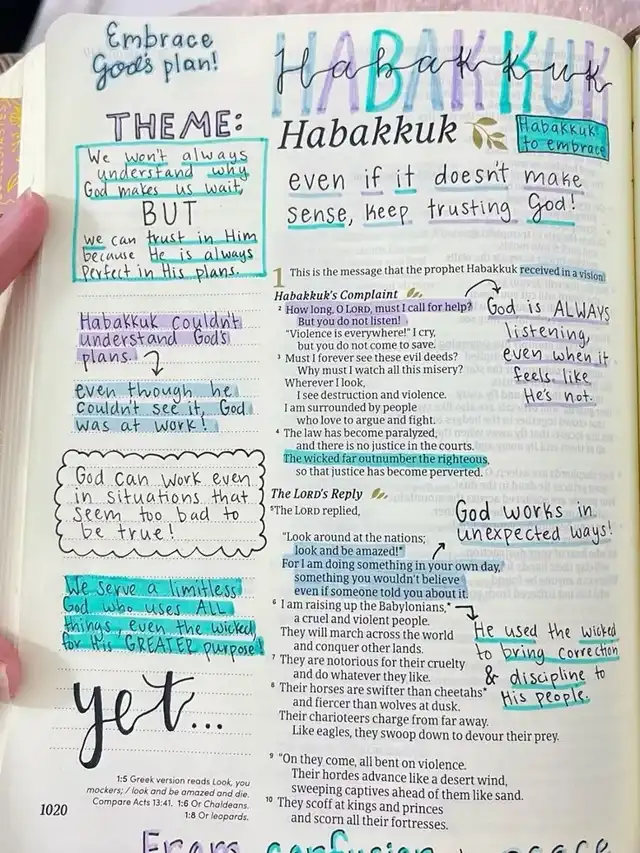 Embrace
God's plan!
Habakkuk
HABAKKUK
THEME:
We won't always
understand why
God makes us wait,
BUT
we can trust in Him
because He is always
perfect in His plans.
Habakkuk couldn't
understand God's
plans.
even though he
couldn't see it, God
was at work!
God can work even
in situations that
seem too bad to
be true!
We serve a limitless
God who uses ALL
things, even the wicked
for His GREATER purpose!
yet...
1:5 Greek version reads Look, you
mockers; / look and be amazed and die.
Compare Acts 13:41. 1:6 Or Chaldeans.
1:8 Or leopards.
1020
Habakkuk
Habakkuk:
to embrace
even if it doesn't make
sense, keep trusting God!
1 This is the message that the prophet Habakkuk received in a vision
Habakkuk's Complaint
2 How long, O LORD, must I call for help?
But you do not listen!
"Violence is everywhere!" I cry,
but you do not come to save.
3 Must I forever see these evil deeds?
Why must I watch all this misery?
Wherever I look,
I see destruction and violence.
I am surrounded by people
who love to argue and fight.
4 The law has become paralyzed,
and there is no justice in the courts.
The wicked far outnumber the righteous,
so that justice has become perverted.
God is ALWAYS
listening,
even when it
feels like
He's not.
The LORD's Reply
5 The LORD replied,
"Look around at the nations;
look and be amazed!*
For I am doing something in your own day,
something you wouldn't believe
even if someone told you about it.
God works in
unexpected ways!
6 I am raising up the Babylonians,*
a cruel and violent people.
They will march across the world
and conquer other lands.
7 They are notorious for their cruelty
and do whatever they like.
8 Their horses are swifter than cheetahs*
and fiercer than wolves at dusk.
Their charioteers charge from far away.
Like eagles, they swoop down to devour their prey.
He used the wicked
to bring correction
& discipline to
His people.
9 "On they come, all bent on violence.
Their hordes advance like a desert wind,
sweeping captives ahead of them like sand.
10 They scoff at kings and princes
and scorn all their fortresses.
From confusion